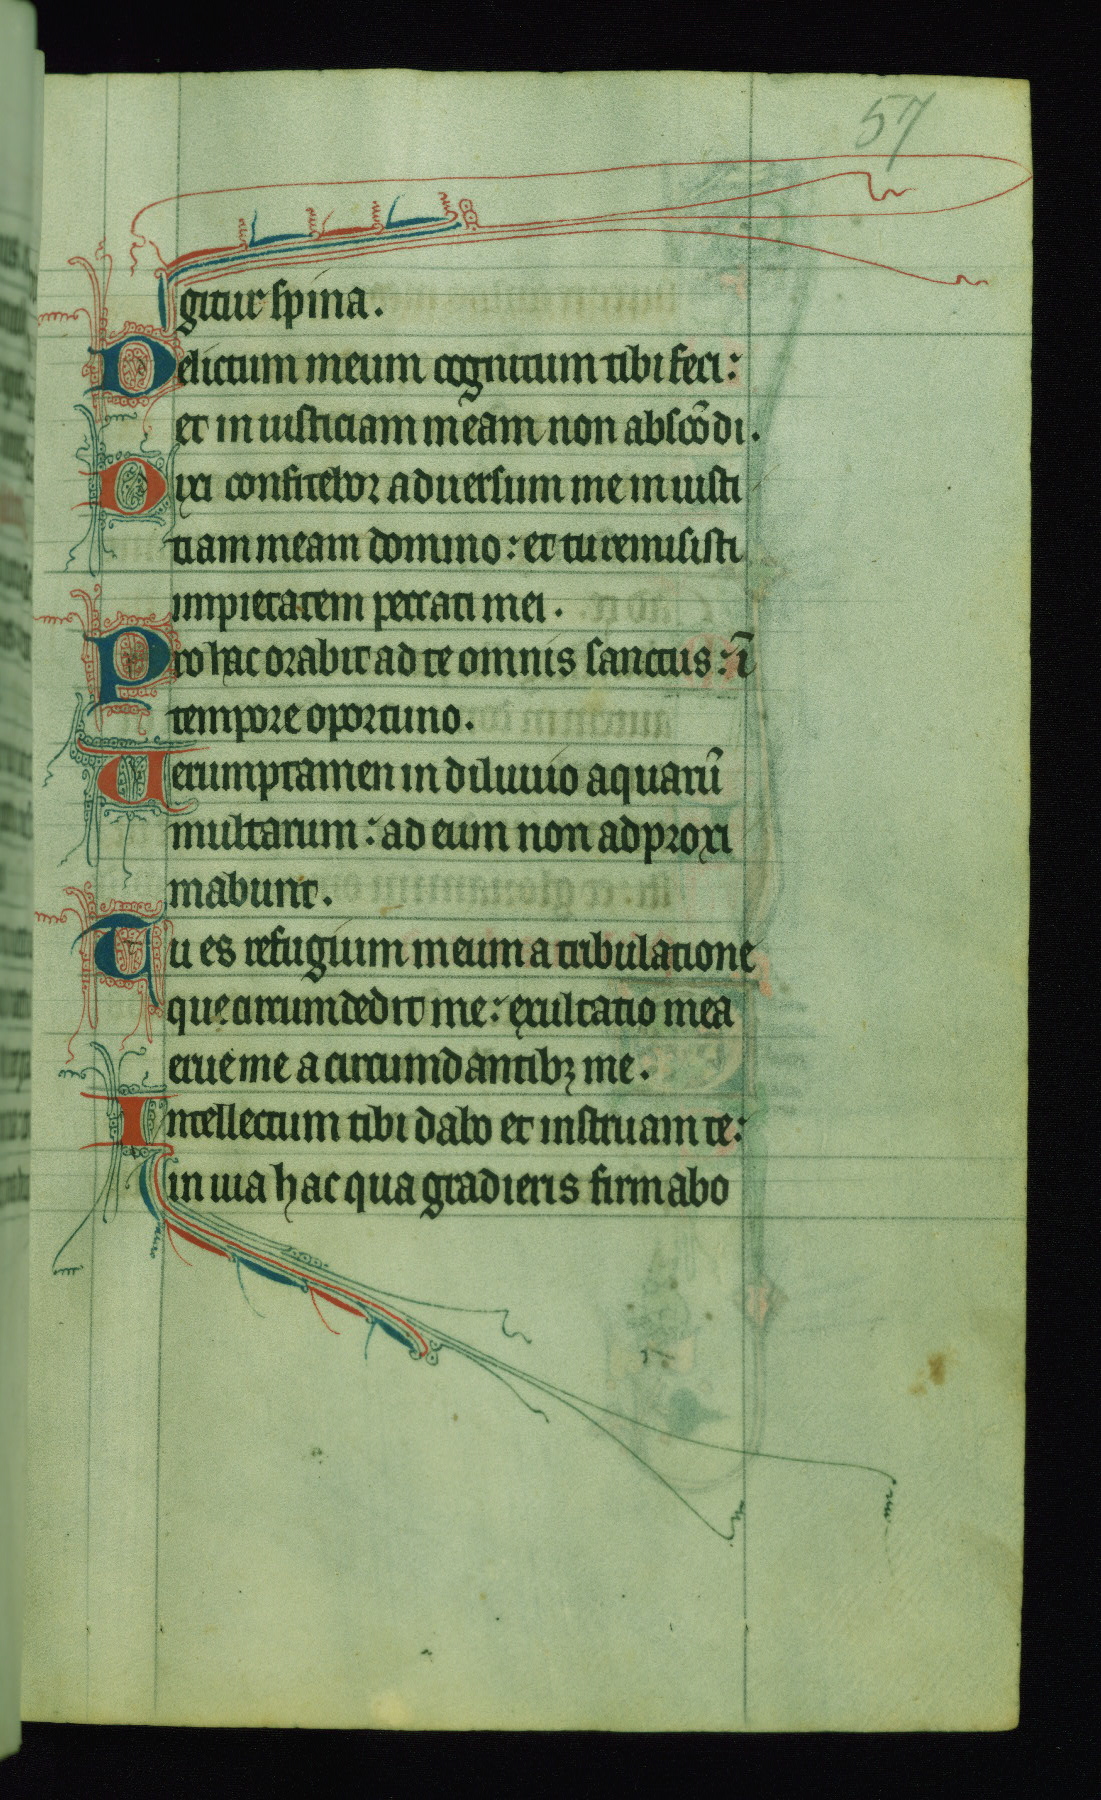 57
gitur spina.
Delictum meum cognitum tibi feci:
et in iusticiam meam non abscōdi.
Dixi confitebor aduersum me in iusti
tiam meam domino: et tu remisisti
impietatem peccati mei.
Pro hac orabit ad te omnis sanctus: ī
tempore oportuno.
Uerumptamen in diluuio aquarū
multarum: ad eum non adproxi
mabunt.
Tu es refugium meum a tribulatione
que circumdedit me: exultatio mea
erue me a circumdantibꝫ me.
Intellectum tibi dabo et instruam te:
in uia hac qua gradieris firmabo